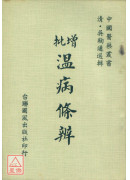 中國醫藥叢書
清・吳鞠通選輯
增批
溫病條辨
台聯國風出版社印行